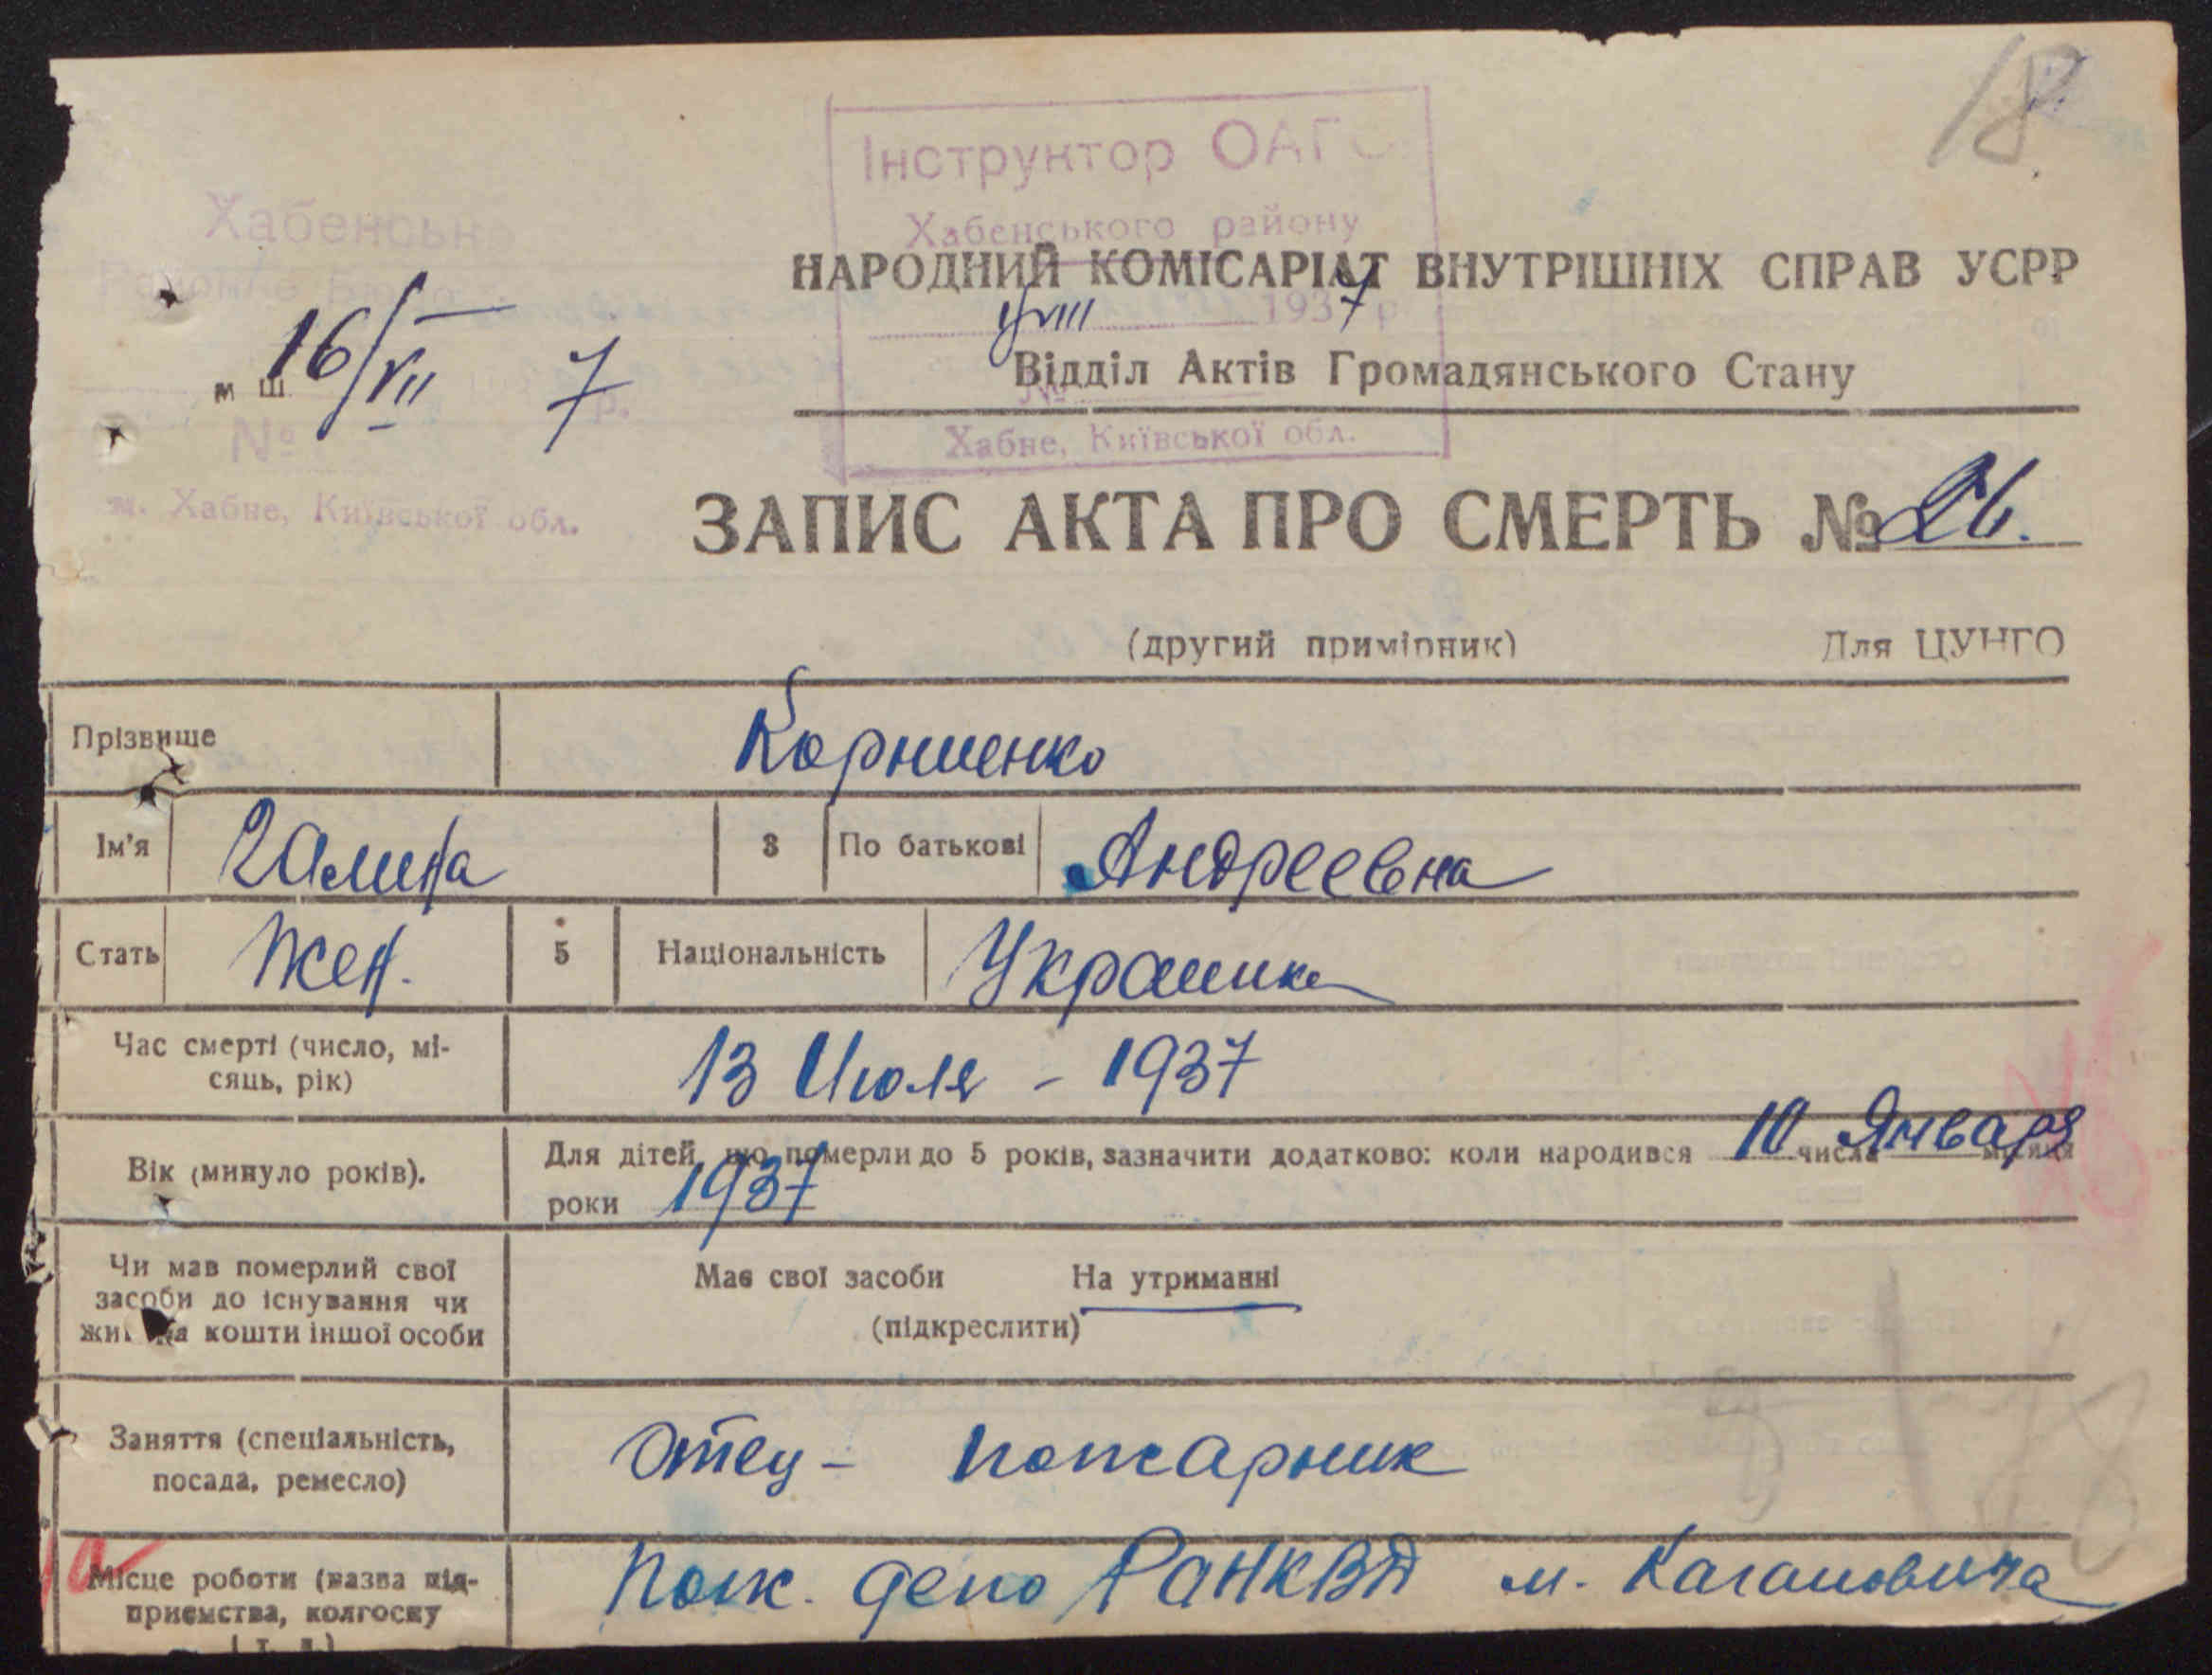 18
Інструктор ОАГС
Хабенського району
Хабенське
НАРОДНИЙ КОМІСАРІАТ ВНУТРІШНІХ СПРАВ УСРР
VIII 1937 р
16/VII 7 р.
Відділ Актів Громадянського Стану
№
№
Хабне, Київської обл.
м. Хабне, Київської обл.
ЗАПИС АКТА ПРО СМЕРТЬ № 26.
(другий примірник) Для ЦУНГО
Прізвище Корниенко
Ім'я Галина 3 По батькові Андреевна
Стать Жен. 5 Національність Украинка
Час смерті (число, мі-
сяць, рік) 13 Июля - 1937
Вік (минуло років). Для дітей, що померли до 5 років, зазначити додатково: коли народився 10 числа Января місяця
роки 1937
Чи мав померлий свої
засоби до існування чи
жив на кошти іншої особи
Має свої засоби На утриманні
(підкреслити)
Заняття (спеціальність,
посада, ремесло) Отец - пожарник
Місце роботи (назва під-
приємства, колгоспу
і т. п.)
Пож. депо РАНКВД м. Кагановича